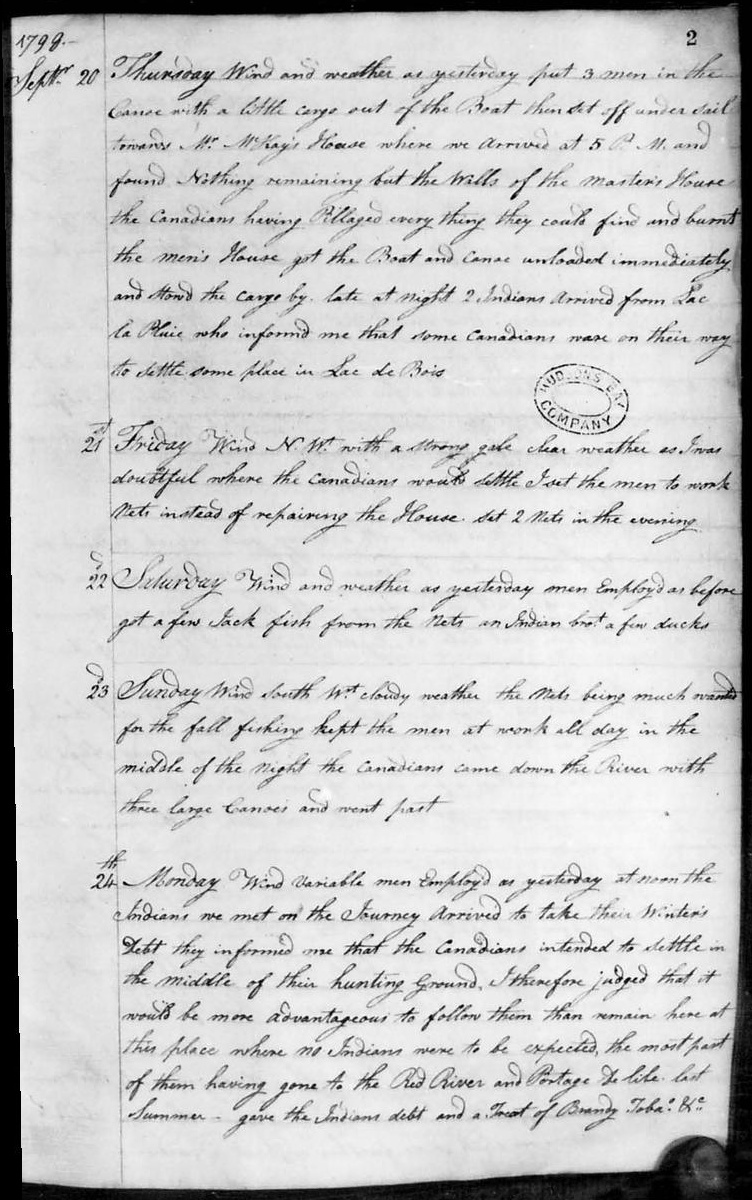 2
1798.-
Septr. 20 Thursday Wind and weather as yesterday put 3 men in the
Canoe with a little cargo out of the Boat then set off under sail
towards Mr. McKay's House where we Arrived at 5 P. M. and
found Nothing remaining but the Walls of the Master's House
the Canadians having Pillaged every thing they could find and burnt
the men's House got the Boat and Canoe unloaded immediately
and stowd the cargo by. late at night 2 Indians Arrived from Lac
la Pluie who informd me that some Canadians ware on their way
to settle some place in Lac de Bois
HUDSON'S BAY COMPANY
21st Friday Wind N. Wt. with a strong gale clear weather as I was
doubtful where the Canadians would settle I set the men to work
Nets instead of repairing the House. set 2 Nets in the evening
22d Saturday Wind and weather as yesterday men Employd as before
got a few Jack fish from the Nets an Indian brot a few ducks
23d Sunday Wind South Wt. cloudy weather the Nets being much wanted
for the fall fishing kept the men at work all day in the
middle of the Night the Canadians came down the River with
three large Canoes and went past
24th Monday Wind Variable men Employd as yesterday at noon the
Indians we met on the Journey Arrived to take their Winter's
Debt they informed me that the Canadians intended to settle in
the middle of their hunting Ground, I therefore judged that it
would be more advantageous to follow them than remain here at
this place where no Indians were to be expected, the most part
of them having gone to the Red River and Portage De lile. last
Summer - gave the Indians debt and a Treat of Brandy Tobao. &c